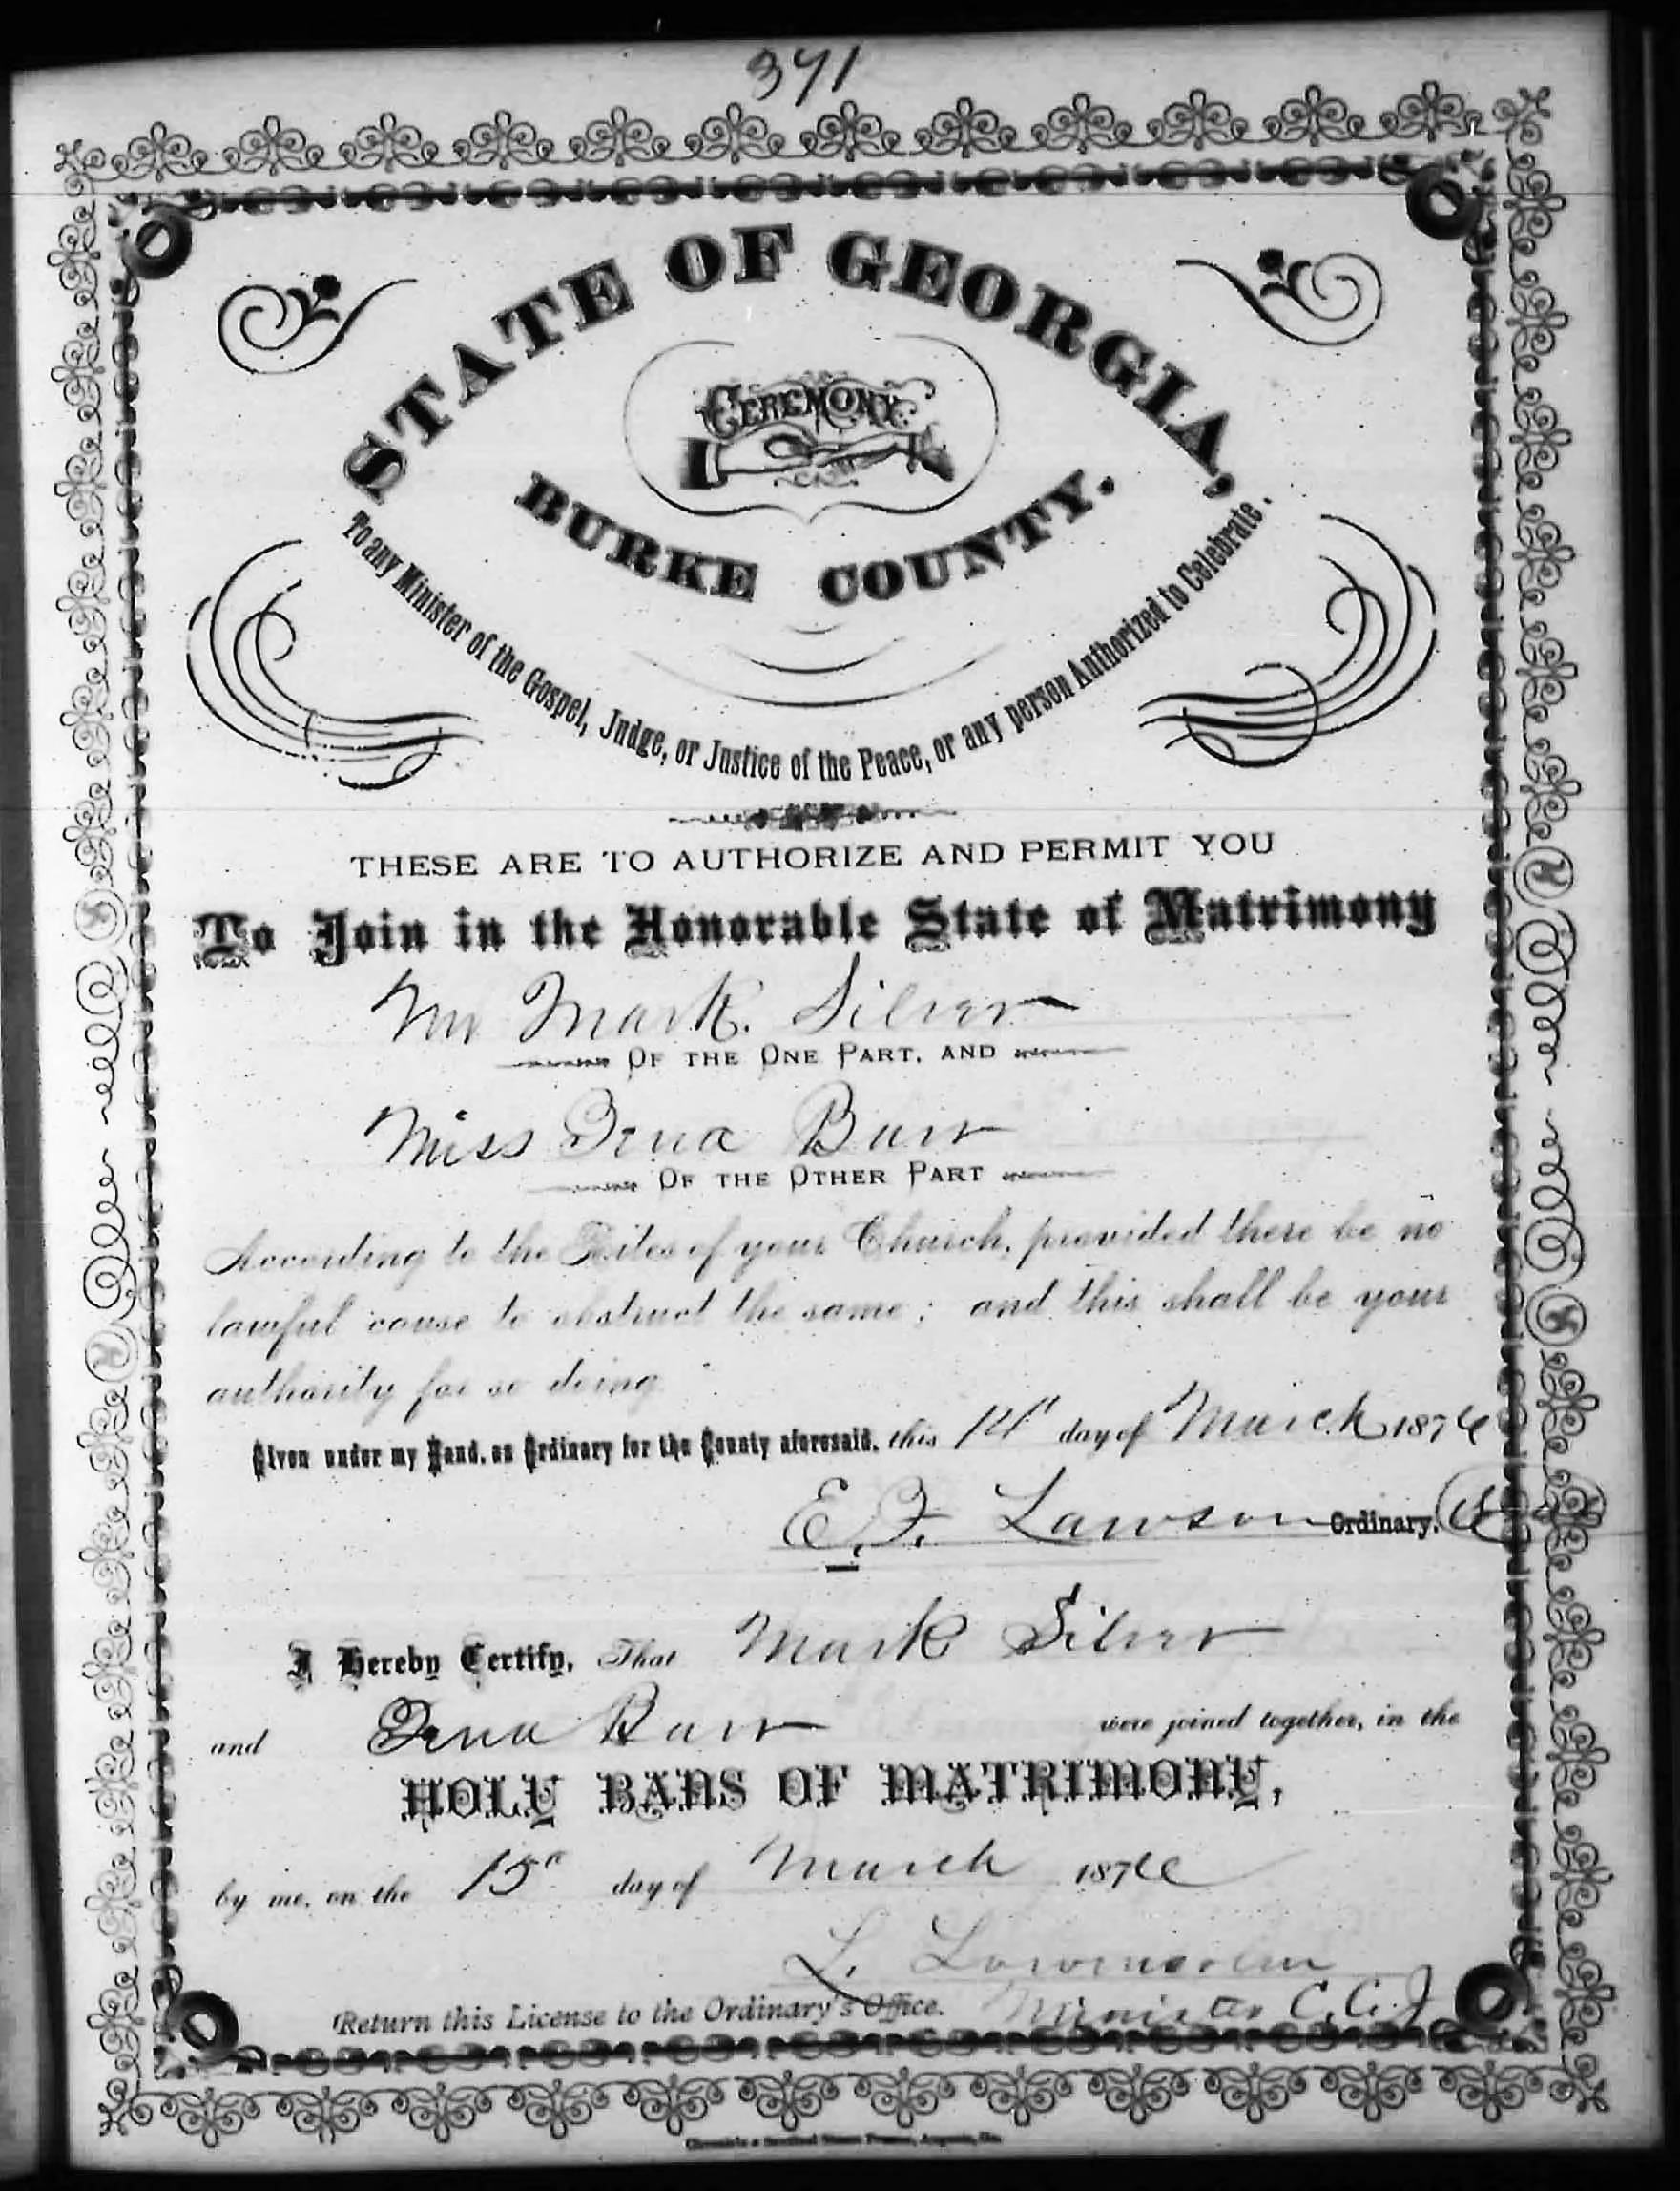 371
STATE OF GEORGIA,
CEREMONY
BURKE COUNTY.
To any Minister of the Gospel, Judge, or Justice of the Peace, or any person Authorized to Celebrate.
THESE ARE TO AUTHORIZE AND PERMIT YOU
To Join in the Honorable State of Matrimony
Mr Mark. Silver
OF THE ONE PART, AND
Miss Burr
OF THE OTHER PART
According to the Rites of your Church, provided there be no
lawful cause to obstruct the same; and this shall be your
authority for so doing
Given under my Hand, as Ordinary for the County aforesaid, this 14" day of March 187
E. F. Lawson Ordinary.
I Hereby Certify, That Mark Silver
and Burr were joined together, in the
HOLY BANS OF MATRIMONY,
by me, on the 15" day of March 187
L.
Return this License to the Ordinary's Office. Minister C.C.
Chronicle & Sentinel Steam Presses, Augusta, Ga.